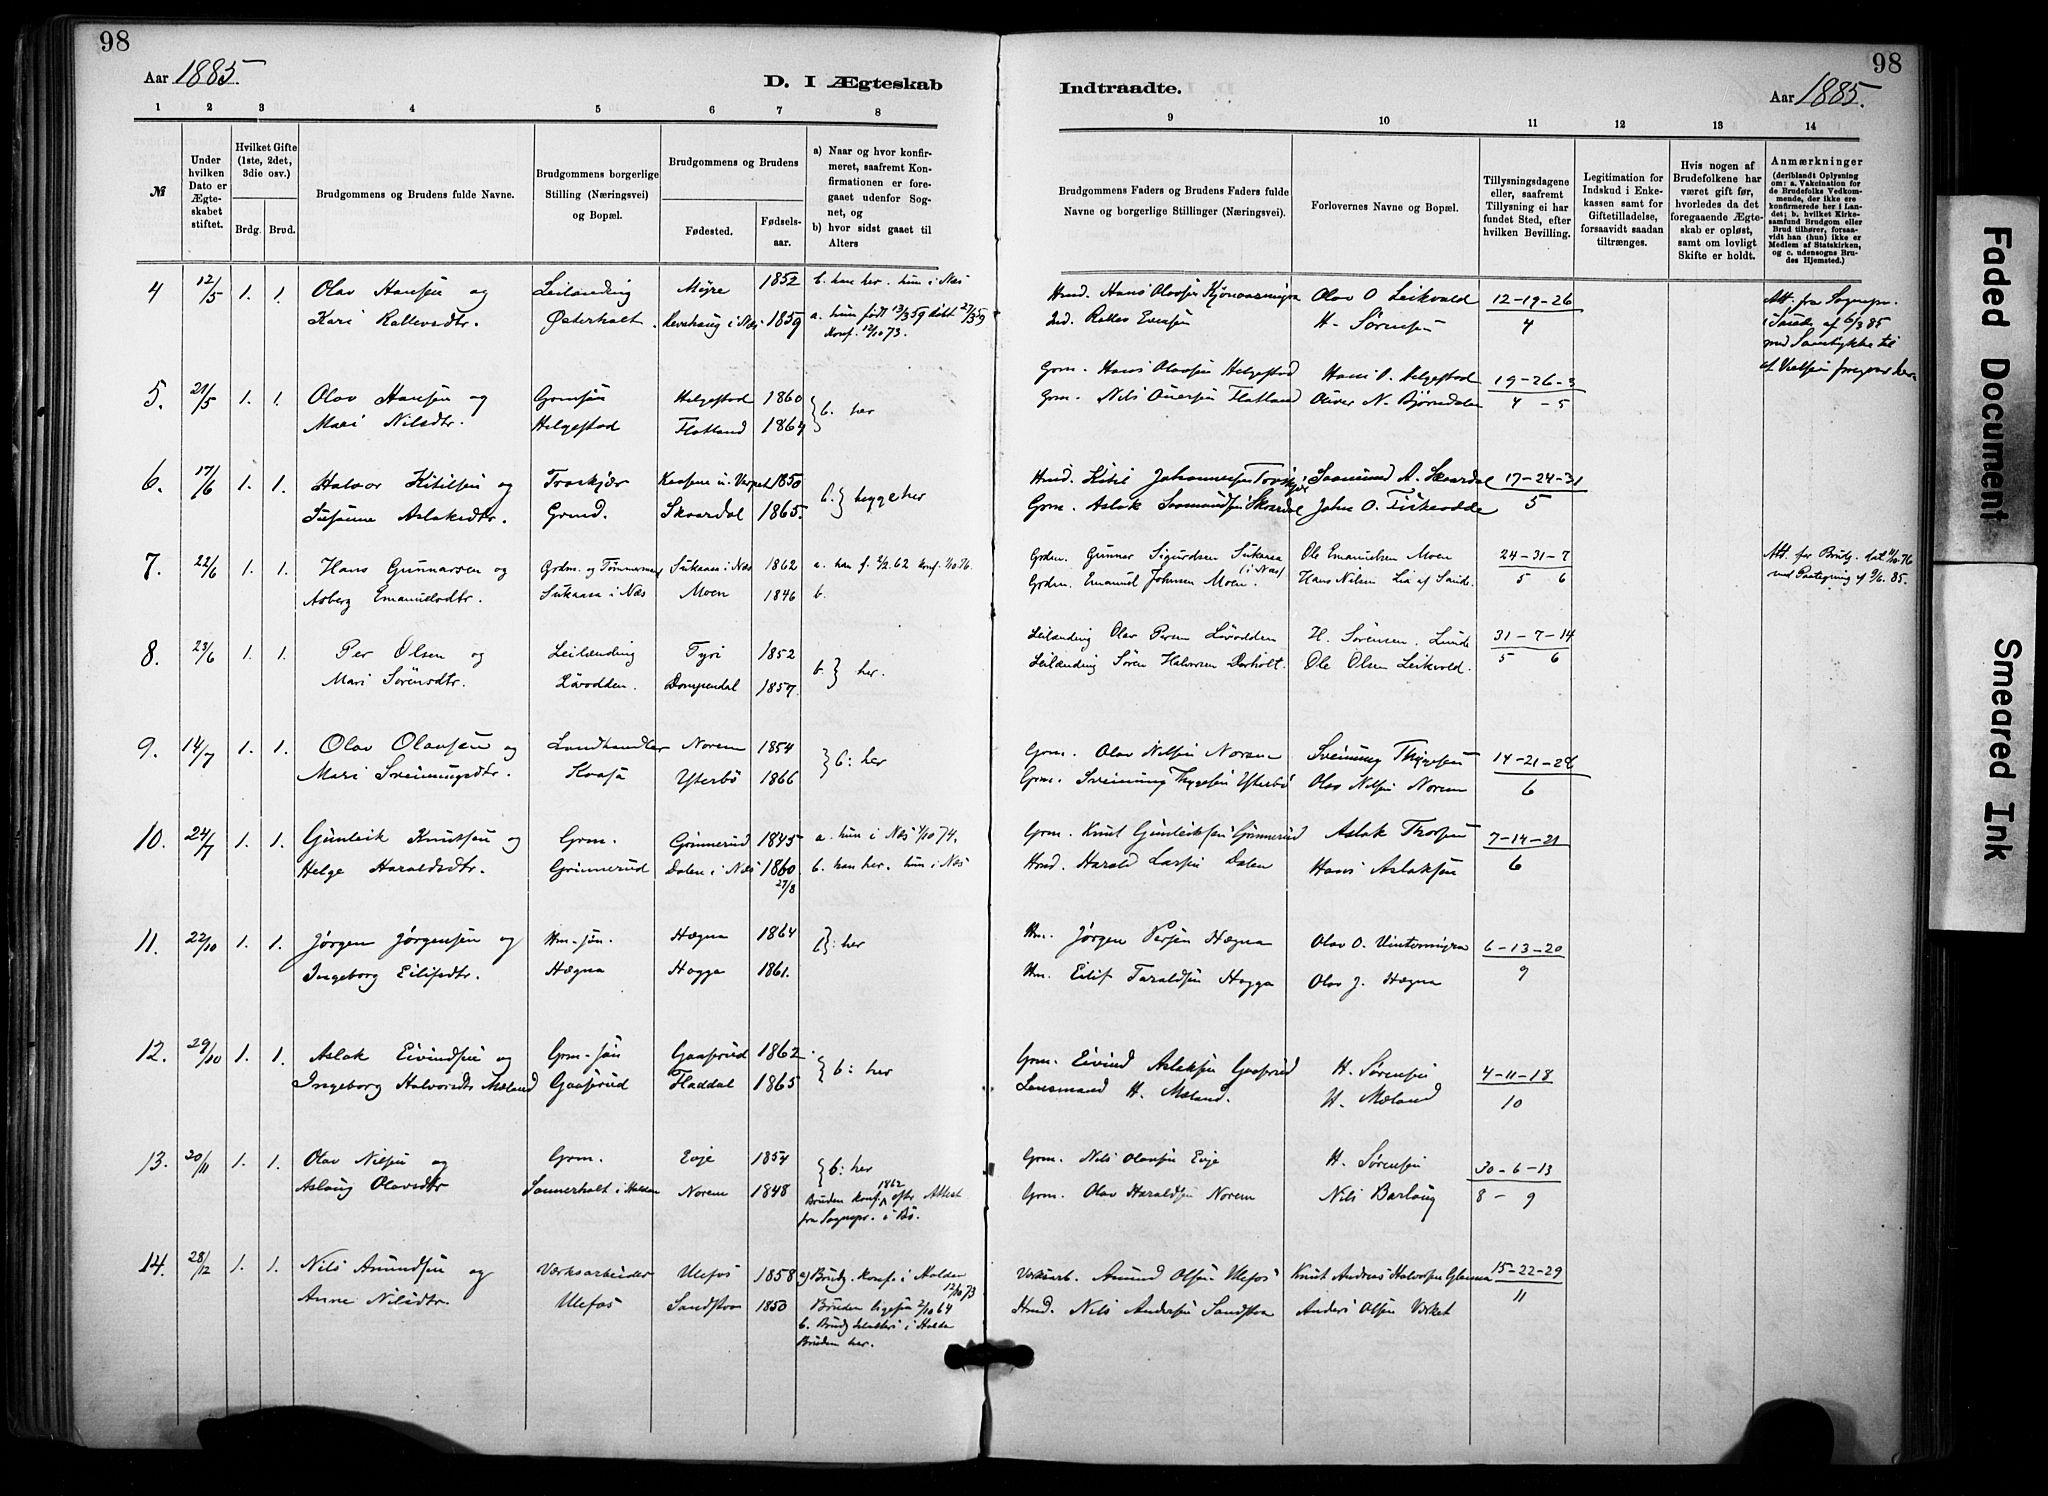 98
Aar 1885.
D. I Ægteskab
1 2 3 4 5 6 7 8
№
Under hvilken Dato er Ægteskabet stiftet.
Hvilket Gifte (1ste, 2det, 3die osv.)
Brdg. Brud.
Brudgommens og Brudens fulde Navne.
Brudgommens borgerlige Stilling (Næringsvei) og Bopæl.
Brudgommens og Brudens
Fødested. Fødselsaar.
a) Naar og hvor konfirmeret, saafremt Konfirmationen er foregaaet udenfor Sognet, og
b) hvor sidst gaaet til Alters
4 12/5 1. 1. Olav Hansen og Leilending Myre 1852 b. han her. hun i Næs
Kari Rollevsdtr. Østerholt. i Næs 1859 a. hun født 13/3 59 døbt 27/3 59
Konf. 12/10 73.
5. 21/5 1. 1. Olav Hansen og Grmsøn Helgestad 1860 } b. her
Mari Nilsdtr. Helgestad Flatland 1864
6. 17/6 1. 1. Halvor Kitilsen og 1850 b. } begge her
Susanne Aslaksdtr. Grmd. Skvardal 1865.
7. 22/6 1. 1. Hans Gunnarsen og Grdm. og Tømmermd Sukaasa i Næs 1862 a. han f. 2/2 62 Konf. 1/10 76.
Asberg Emanuelsdtr. Sukaasa i Næs Moen 1846 b.
8. 23/6 1. 1. Per Olsen og Leilænding Tyri 1852 b. } her.
Mari Sørensdtr. Lövodden. Dompendal 1857.
9. 14/7 1. 1. Olav Olavsen og Landhandler Norem 1854 } b: her
Mari Sveinungsdtr. Ytterbö 1866
10. 24/7 1. 1. Gunleik Knutsen og Grm. Grinnerud 1845 a. hun i Næs 4/10 74.
Helge Haraldsdtr. Grinnerud Dalen i Næs 1860 b. han her. hun i Næs
27/8
11. 22/10 1. 1. Jørgen Jørgensen og Hm-søn. Hægna 1864 b: her
Ingeborg Eilifsdtr. Hægna Hogga 1861.
12. 29/10 1. 1. Aslak Eivindsen og Grm-søn Gaasrud 1862. } b: her
Ingeborg Halvorsdtr Mæland Gaasrud Fladdal 1865
13. 20/11 1. 1. Olav Nilsen og Grm. Evje 1854 } b: her
Aslaug Olavsdtr Sannerholt i Holden Norem 1848 Bruden konf. 1862 efter Attest
fra Sognepr. i Bö.
14. 28/12 1. 1. Nils Amundsen og Værksarbeider Ulefos 1858 a) Brudg. konf. i Holden
12/10 73
Anne Nilsdtr. Ulefos 1850 Bruden ligesaa 2/10 64
b. Brudg. i Holden
Bruden her.
98
Indtraadte.
Aar 1885.
9 10 11 12 13 14
Brudgommens Faders og Brudens Faders fulde Navne og borgerlige Stillinger (Næringsvei).
Forlovernes Navne og Bopæl.
Tillysningsdagene eller, saafremt Tillysning ei har fundet Sted, efter hvilken Bevilling.
Legitimation for Indskud i Enkekassen samt for Giftetilladelse, forsaavidt saadan tiltrænges.
Hvis nogen af Brudefolkene har været gift før, hvorledes da det foregaaende Ægteskab er opløst, samt om lovligt Skifte er holdt.
Anmærkninger (deriblandt Oplysning om: a. Vakcination for de Brudefolks Vedkommende, der ikke ere konfirmerede her i Landet; b. hvilket Kirkesamfund Brudgom eller Brud tilhører, forsaavidt han (hun) ikke er Medlem af Statskirken, og c. udensogns Brudes Hjemsted.)
Hmd. Hans Olavsen Olav O. Leikvold 12-19-26
Ind. Rollev Evensen H. Sørensen 4
Att. fra Sognepr.
af 6/3 85
med Samtykke til
at Vielsen foregaar her.
Grm. Hans Olavsen Helgestad Hans O. Helgestad 19-26-3
Grm. Nils Flatland Oliver N. Bjørndalen 4 - 5
Hmd. Kitil Johannesen Saamund A. Skvardal 17-24-31
Grm. Aslak Saamundsen Skvardal John O. 5
Grdm. Gunnar Sigurdsen Sukaasa (i Næs) Ole Emanuelsen Moen 24-31-7
Grdm. Emanuel Johnsen Moen. Hans Nilsen Lia af Sande. 5 6
Att. for Brudg. dat. 1/10 76
med Paategning af 9/6. 85.
Leilænding Olav Persen Lövodden H. Sørensen, Lunde 31-7-14
Leilænding Sören Halvorsen Ole Olsen Leikvold. 5 6
Grm. Olav Nilsen Norem Sveinung Thygesen 14-21-28
Grm. Sveinung Thygesen Ytterbö Olav Nilsen Norem 6
Grm. Knut Gunleiksen Grinnerud Aslak Thorsen 7-14-21
Hmd. Harald Larsen Dalen Hans Aslaksen 6
Hm. Jørgen Persen Hægna Olav O. Vintermyra 6-13-20
Hm. Eilif Taraldsen Hogga Olav J. Hægna 9
Grm. Eivind Aslaksen Gaasrud H. Sørensen 4-11-18
Lensmand H. Mæland. H. Mæland 10
Grm. Nils Olavsen Evje H. Sørensen 30-6-13
Grm. Olav Haraldsen Norem Nils Barlaug 8 - 9
Værksarb. Amund Olsen Ulefos Knut Andreas Halvorsen 15-22-29
Hmd. Nils Andersen Anders Olsen Værket 11
Faded Document
Smeared Ink